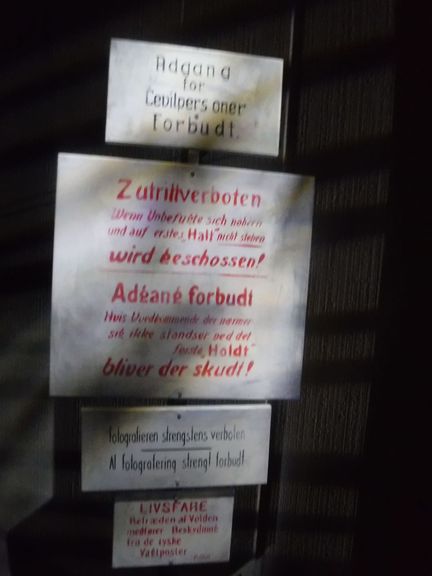 Adgang
for
Cevilpersoner
Forbudt.
Zutrittverboten
Wenn Unbefugte sich nähern
und auf erstes „Halt" nicht stehen
wird beschossen!
Adgang forbudt
Hvis Uvedkommende der nærmer
sig ikke standser ved det
første „Holdt"
bliver der skudt!
Fotografieren strengstens verboten
Al fotografering strengt forbudt
LIVSFARE
Betræden af Volden
medfører Beskydning
fra de tyske
Vagtposter